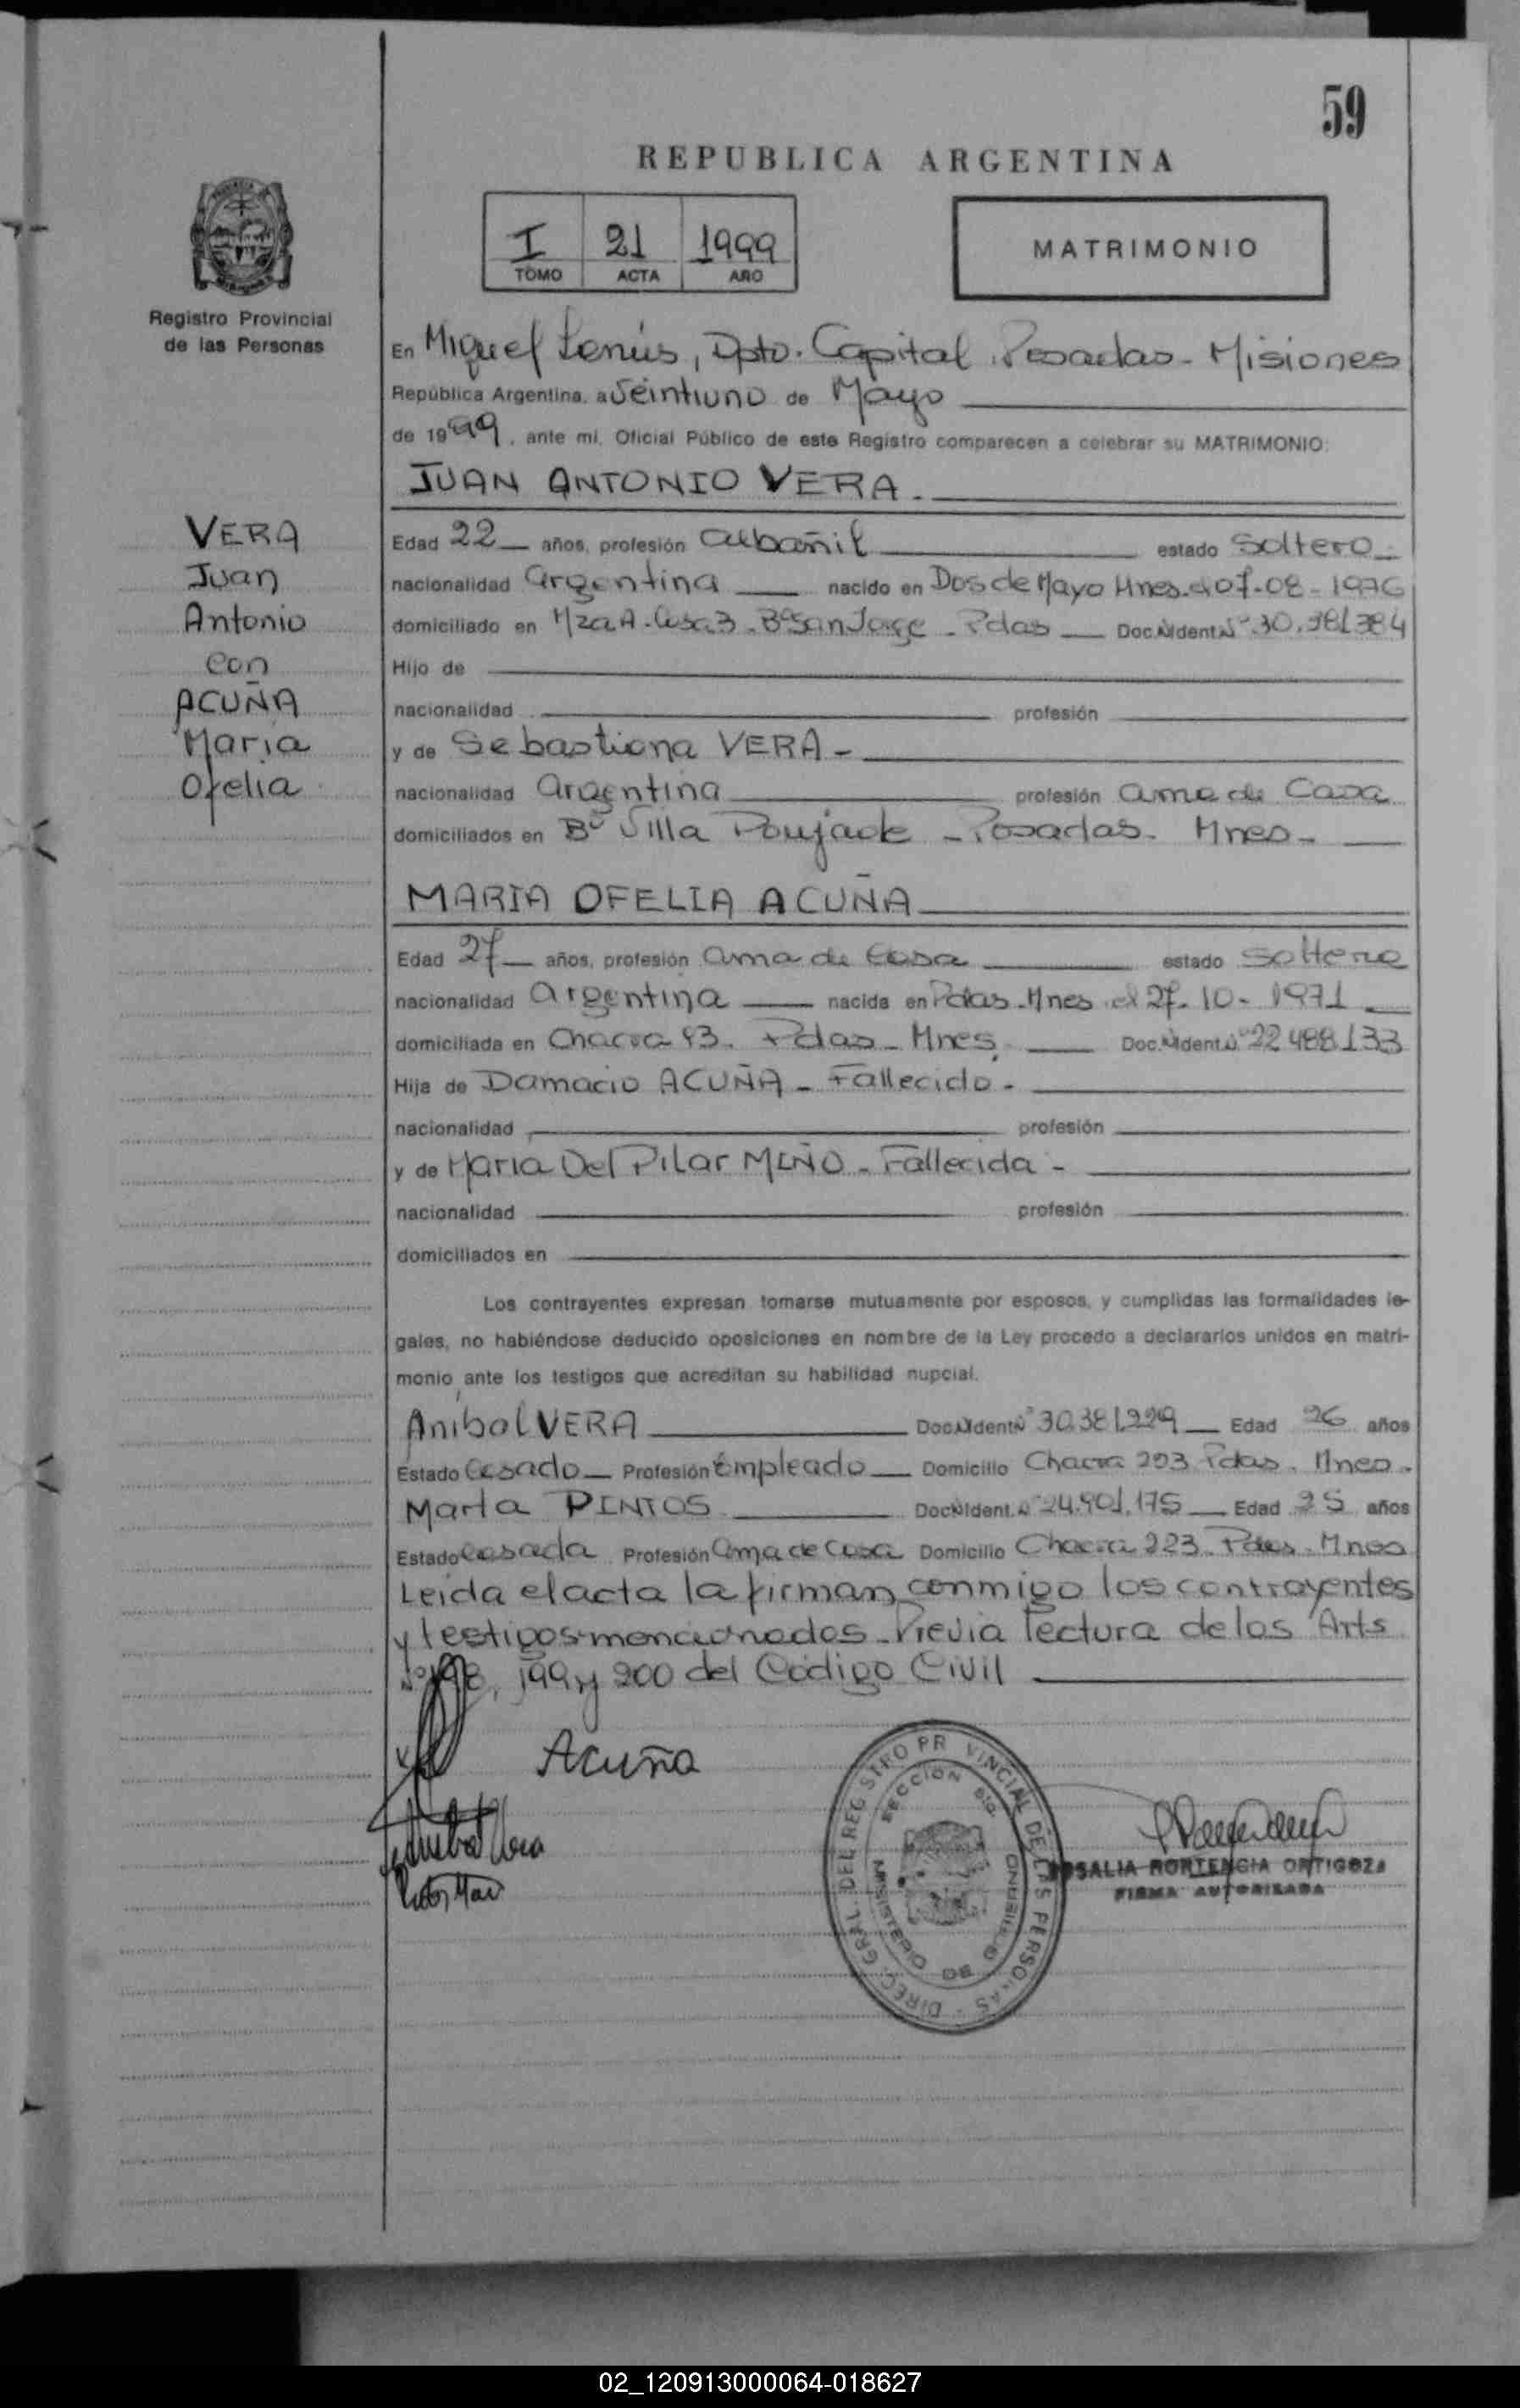 59
REPUBLICA ARGENTINA
I 21 1999
TOMO ACTA AÑO
MATRIMONIO
Registro Provincial
de las Personas
En Miguel Lanús, Dpto. Capital, Posadas - Misiones
República Argentina, a veintiuno de Mayo
de 1999, ante mi, Oficial Público de este Registro comparecen a celebrar su MATRIMONIO:
JUAN ANTONIO VERA.
VERA
Juan
Antonio
con
ACUÑA
Maria
Ofelia
Edad 22 años, profesión albañil estado Soltero
nacionalidad argentina nacido en Dos de Mayo Mnes. el 07-08-1976
domiciliado en Mza A. Casa 3. Bº San Jorge - Pdas Doc. N. Ident. Nº 30.381384
Hijo de
nacionalidad profesión
y de Sebastiana VERA -
nacionalidad argentina profesión ama de Casa
domiciliados en Bº Villa Poujade - Posadas - Mnes -
MARIA OFELIA ACUÑA
Edad 27 años, profesión ama de Casa estado Soltera
nacionalidad argentina nacida en Pdas - Mnes el 27-10-1971
domiciliada en Chacra 93. Pdas - Mnes. Doc. N. Ident. Nº 22 488133
Hija de Damacio ACUÑA - Fallecido -
nacionalidad profesión
y de Maria Del Pilar MIÑO - Fallecida -
nacionalidad profesión
domiciliados en
Los contrayentes expresan tomarse mutuamente por esposos, y cumplidas las formalidades le-
gales, no habiéndose deducido oposiciones en nombre de la Ley procedo a declararlos unidos en matri-
monio ante los testigos que acreditan su habilidad nupcial.
Anibal VERA Doc. N. Ident. Nº 30.381.229 Edad 26 años
Estado Casado Profesión Empleado Domicilio Chacra 203 Pdas. Mnes.
Marta PINTOS Doc. N. Ident. Nº 24.901.175 Edad 25 años
Estado Casada Profesión ama de casa Domicilio Chacra 223. Pdas. Mnes
Leida el acta la firman conmigo los contrayentes
y testigos mencionados - Previa lectura de los Arts
Nº 198, 199 y 200 del Código Civil
Acuña
DIREC. GRAL. DEL REGISTRO PR VINCIAL DE LAS PERSONAS
SECCION
MINISTERIO DE GOBIERNO
ROSALIA HORTENCIA ORTIGOZA
FIRMA AUTORIZADA
02_120913000064-018627